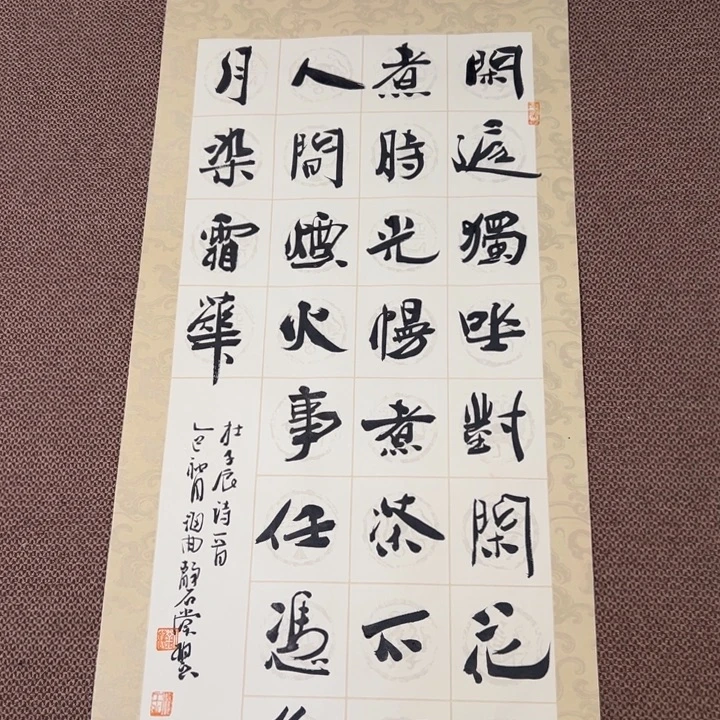 閑庭獨坐對閑花
煮時光慢煮茶不
人間煙火事任憑
月染霜華
杜子辰詩一首
靜石堂